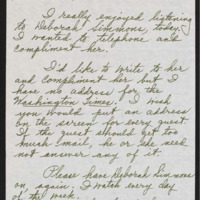 I really enjoyed listening
to Deborah Simmons, today.
I wanted to telephone and
compliment her.
I'd like to write to her
and compliment her but I
have no address for the
Washington Times. I wish
you would put an address
on the screen for every guest.
If the guest should get too
much Email, he or she need
not answer any of it.
Please have Deborah Simmons
on, again. I watch every day
of the week.